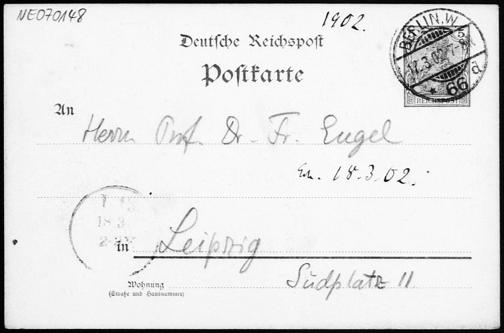 NE070148
1902.
BERLIN.W.
17.3.02.7-8N.
* 66 d
5
REICHSPOST
Deutsche Reichspost
Postkarte
An
Herrn Prof. Dr. Fr. Engel
Erh. 18.3.02.
18.3
in Leipzig
Wohnung
(Straße und Hausnummer)
Südplatz 11